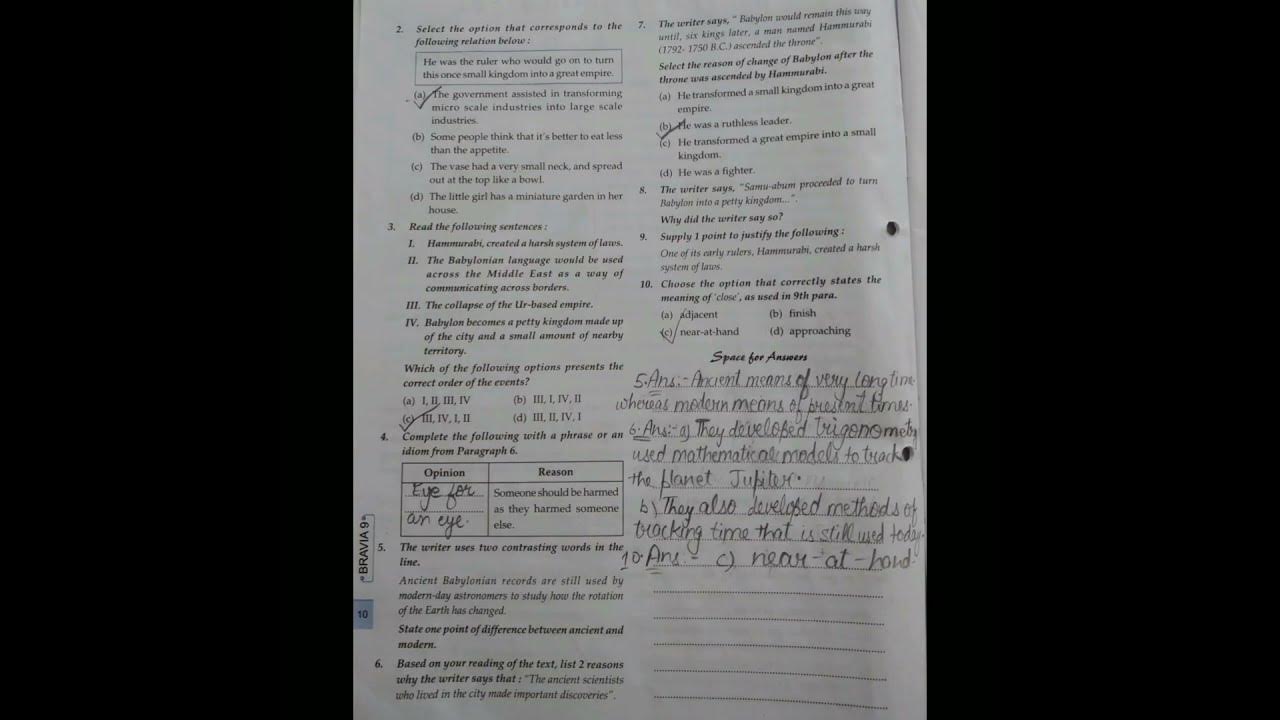 2. Select the option that corresponds to the
following relation below :
He was the ruler who would go on to turn
this once small kingdom into a great empire.
(a) The government assisted in transforming
micro scale industries into large scale
industries.
(b) Some people think that it's better to eat less
than the appetite.
(c) The vase had a very small neck, and spread
out at the top like a bowl.
(d) The little girl has a miniature garden in her
house.
3. Read the following sentences :
I. Hammurabi, created a harsh system of laws.
II. The Babylonian language would be used
across the Middle East as a way of
communicating across borders.
III. The collapse of the Ur-based empire.
IV. Babylon becomes a petty kingdom made up
of the city and a small amount of nearby
territory.
Which of the following options presents the
correct order of the events?
(a) I, II, III, IV (b) III, I, IV, II
(c) III, IV, I, II (d) III, II, IV, I
4. Complete the following with a phrase or an
idiom from Paragraph 6.
Opinion Reason
Eye for Someone should be harmed
as they harmed someone
an eye. else.
5. The writer uses two contrasting words in the
line.
Ancient Babylonian records are still used by
modern-day astronomers to study how the rotation
of the Earth has changed.
State one point of difference between ancient and
modern.
6. Based on your reading of the text, list 2 reasons
why the writer says that : "The ancient scientists
who lived in the city made important discoveries".
BRAVIA 9
10
7. The writer says, " Babylon would remain this way
until, six kings later, a man named Hammurabi
(1792- 1750 B.C.) ascended the throne".
Select the reason of change of Babylon after the
throne was ascended by Hammurabi.
(a) He transformed a small kingdom into a great
empire.
(b) He was a ruthless leader.
(c) He transformed a great empire into a small
kingdom.
(d) He was a fighter.
8. The writer says, "Samu-abum proceeded to turn
Babylon into a petty kingdom...".
Why did the writer say so?
9. Supply 1 point to justify the following :
One of its early rulers, Hammurabi, created a harsh
system of laws.
10. Choose the option that correctly states the
meaning of 'close', as used in 9th para.
(a) adjacent (b) finish
(c) near-at-hand (d) approaching
Space for Answers
5. Ans:- Ancient means of very long time
whereas modern means of present times.
6. Ans:- a) They developed trigonometry
used mathematical models to track
the planet Jupiter.
b) They also developed methods of
tracking time that is still used today.
10. Ans - c) near-at-hand.